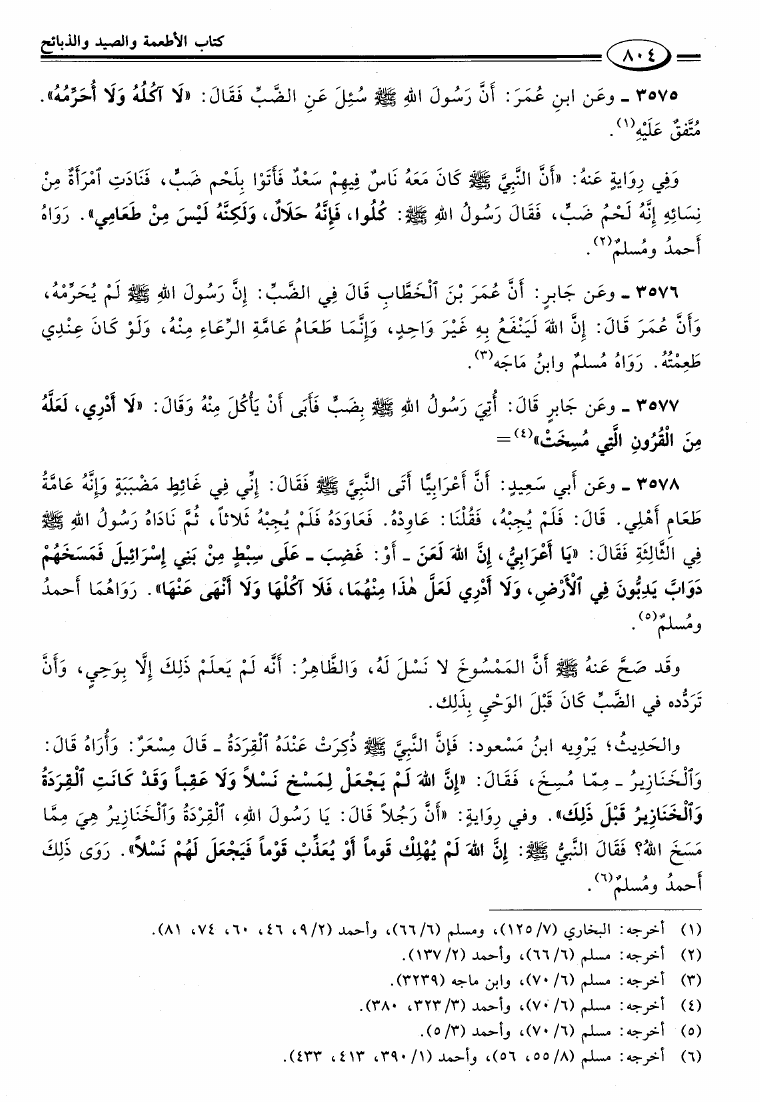 كتاب الأطعمة والصيد والذبائح
٨٠٤
٣٥٧٥ ـ وعَن ابنِ عُمَرَ: أَنَّ رَسُولَ اللهِ ﷺ سُئِلَ عَنِ الضَّبِّ فَقَالَ: «لَا آكُلُهُ وَلَا أُحَرِّمُهُ».
مُتَّفقٌ عَلَيْهِ(١).
وَفِي رِوَايَةٍ عَنهُ: «أَنَّ النَّبِيَّ ﷺ كَانَ مَعَهُ نَاسٌ فِيهِمْ سَعْدٌ فَأَتَوْا بِلَحْمِ ضَبٍّ، فَنَادَتِ ٱمْرَأَةٌ مِنْ
نِسَائِهِ إِنَّهُ لَحْمُ ضَبٍّ، فَقَالَ رَسُولُ اللهِ ﷺ: كُلُوا، فَإِنَّهُ حَلَالٌ، وَلَكِنَّهُ لَيْسَ مِنْ طَعَامِي». رَوَاهُ
أَحمدُ ومُسلمٌ(٢).
٣٥٧٦ ـ وعَن جَابرٍ: أَنَّ عُمَرَ بْنَ ٱلْخَطَّابِ قَالَ فِي الضَّبِّ: إِنَّ رَسُولَ اللهِ ﷺ لَمْ يُحَرِّمْهُ،
وَأَنَّ عُمَرَ قَالَ: إِنَّ اللهَ لَيَنْفَعُ بِهِ غَيْرَ وَاحِدٍ، وَإِنَّمَا طَعَامُ عَامَّةِ الرِّعَاءِ مِنْهُ، وَلَوْ كَانَ عِنْدِي
طَعِمْتُهُ. رَوَاهُ مُسلمٌ وابنُ مَاجَه(٣).
٣٥٧٧ ـ وعَن جَابرٍ قَالَ: أُتِيَ رَسُولُ اللهِ ﷺ بِضَبٍّ فَأَبَى أَنْ يَأْكُلَ مِنْهُ وَقَالَ: «لَا أَدْرِي، لَعَلَّهُ
مِنَ الْقُرُونِ الَّتِي مُسِخَتْ»(٤)=
٣٥٧٨ ـ وعَن أَبي سَعِيدٍ: أَنَّ أَعْرَابِيًّا أَتَى النَّبِيَّ ﷺ فَقَالَ: إِنِّي فِي غَائِطٍ مَضَبَّةٍ وَإِنَّهُ عَامَّةُ
طَعَامِ أَهْلِي. قَالَ: فَلَمْ يُجِبْهُ، فَقُلْنَا: عَاوِدْهُ. فَعَاوَدَهُ فَلَمْ يُجِبْهُ ثَلاثاً، ثُمَّ نَادَاهُ رَسُولُ اللهِ ﷺ
فِي الثَّالِثَةِ فَقَالَ: «يَا أَعْرَابِيُّ، إِنَّ اللهَ لَعَنَ ـ أَوْ: غَضِبَ ـ عَلَى سِبْطٍ مِنْ بَنِي إِسْرَائِيلَ فَمَسَخَهُمْ
دَوَابَّ يَدِبُّونَ فِي ٱلْأَرْضِ، وَلَا أَدْرِي لَعَلَّ هٰذَا مِنْهُمَا، فَلَا آكُلُهَا وَلَا أَنْهَى عَنْهَا». رَوَاهُمَا أَحمدُ
ومُسلمٌ(٥).
وقَد صَحَّ عَنهُ ﷺ أَنَّ المَمْسُوخَ لا نَسْلَ لَهُ، وَالظَّاهِرُ: أَنَّه لَمْ يَعلَمْ ذَلِكَ إِلَّا بِوَحيٍ، وَأَنَّ
تَرَدُّده في الضَّبِّ كَانَ قَبْلَ الوَحْيِ بِذَلِك.
والحَدِيثُ؛ يَرْوِيه ابنُ مَسْعود: فَإِنَّ النَّبِيَّ ﷺ ذُكِرَتْ عِنْدَهُ ٱلْقِرَدَةُ ـ قَالَ مِسْعَرٌ: وَأُرَاهُ قَالَ:
وَٱلْخَنَازِيرُ ـ مِمَّا مُسِخَ، فَقَالَ: «إِنَّ اللهَ لَمْ يَجْعَلْ لِمَسْخٍ نَسْلاً وَلَا عَقِباً وَقَدْ كَانَتِ ٱلْقِرَدَةُ
وَٱلْخَنَازِيرُ قَبْلَ ذَلِكَ». وفي رِوَايَةٍ: «أَنَّ رَجُلاً قَالَ: يَا رَسُولَ اللهِ، ٱلْقِرْدَةُ وَٱلْخَنَازِيرُ هِيَ مِمَّا
مَسَخَ اللهُ؟ فَقَالَ النَّبِيُّ ﷺ: إِنَّ اللهَ لَمْ يُهْلِكْ قَوماً أَوْ يُعَذِّبْ قَوْماً فَيَجْعَلَ لَهُمْ نَسْلاً». رَوَى ذَلِكَ
أَحمدُ ومُسلمٌ(٦).
(١) أخرجه: البخاري (١٢٥/٧)، ومسلم (٦٦/٦)، وأحمد (٩/٢، ٤٦، ٦٠، ٧٤، ٨١).
(٢) أخرجه: مسلم (٦٦/٦)، وأحمد (١٣٧/٢).
(٣) أخرجه: مسلم (٧٠/٦)، وابن ماجه (٣٢٣٩).
(٤) أخرجه: مسلم (٧٠/٦)، وأحمد (٣٢٣/٣، ٣٨٠).
(٥) أخرجه: مسلم (٧٠/٦)، وأحمد (٥/٣).
(٦) أخرجه: مسلم (٥٥/٨، ٥٦)، وأحمد (٣٩٠/١، ٤١٣، ٤٣٣).